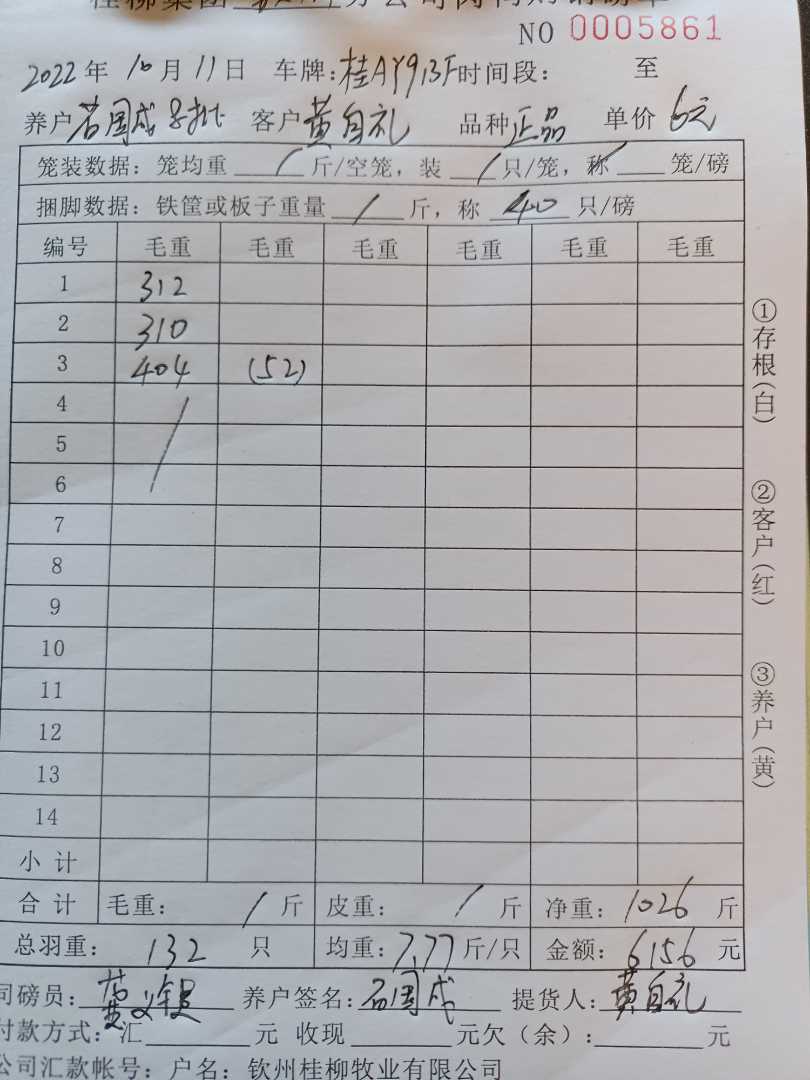 桂柳集团 分公司肉鸭购销磅单
NO 0005861
2022年 10月 11日 车牌:桂AY913F时间段: 至
养户石国成 客户黄自礼 品种正品 单价6元
笼装数据: 笼均重 / 斤/空笼, 装 / 只/笼, 称 / 笼/磅
捆脚数据: 铁筐或板子重量 / 斤, 称 40 只/磅
编号 毛重 毛重 毛重 毛重 毛重 毛重
1 312
2 310
3 404 (52)
4 /
5
6
7
8
9
10
11
12
13
14
小 计
合 计 毛重: / 斤 皮重: / 斤 净重: 1026 斤
总羽重: 132 只 均重: 7.77 斤/只 金额: 6156 元
司磅员: 养户签名: 石国成 提货人: 黄自礼
付款方式: 汇 元 收现 元欠(余): 元
公司汇款帐号: 户名: 钦州桂柳牧业有限公司
①存根(白)
②客户(红)
③养户(黄)